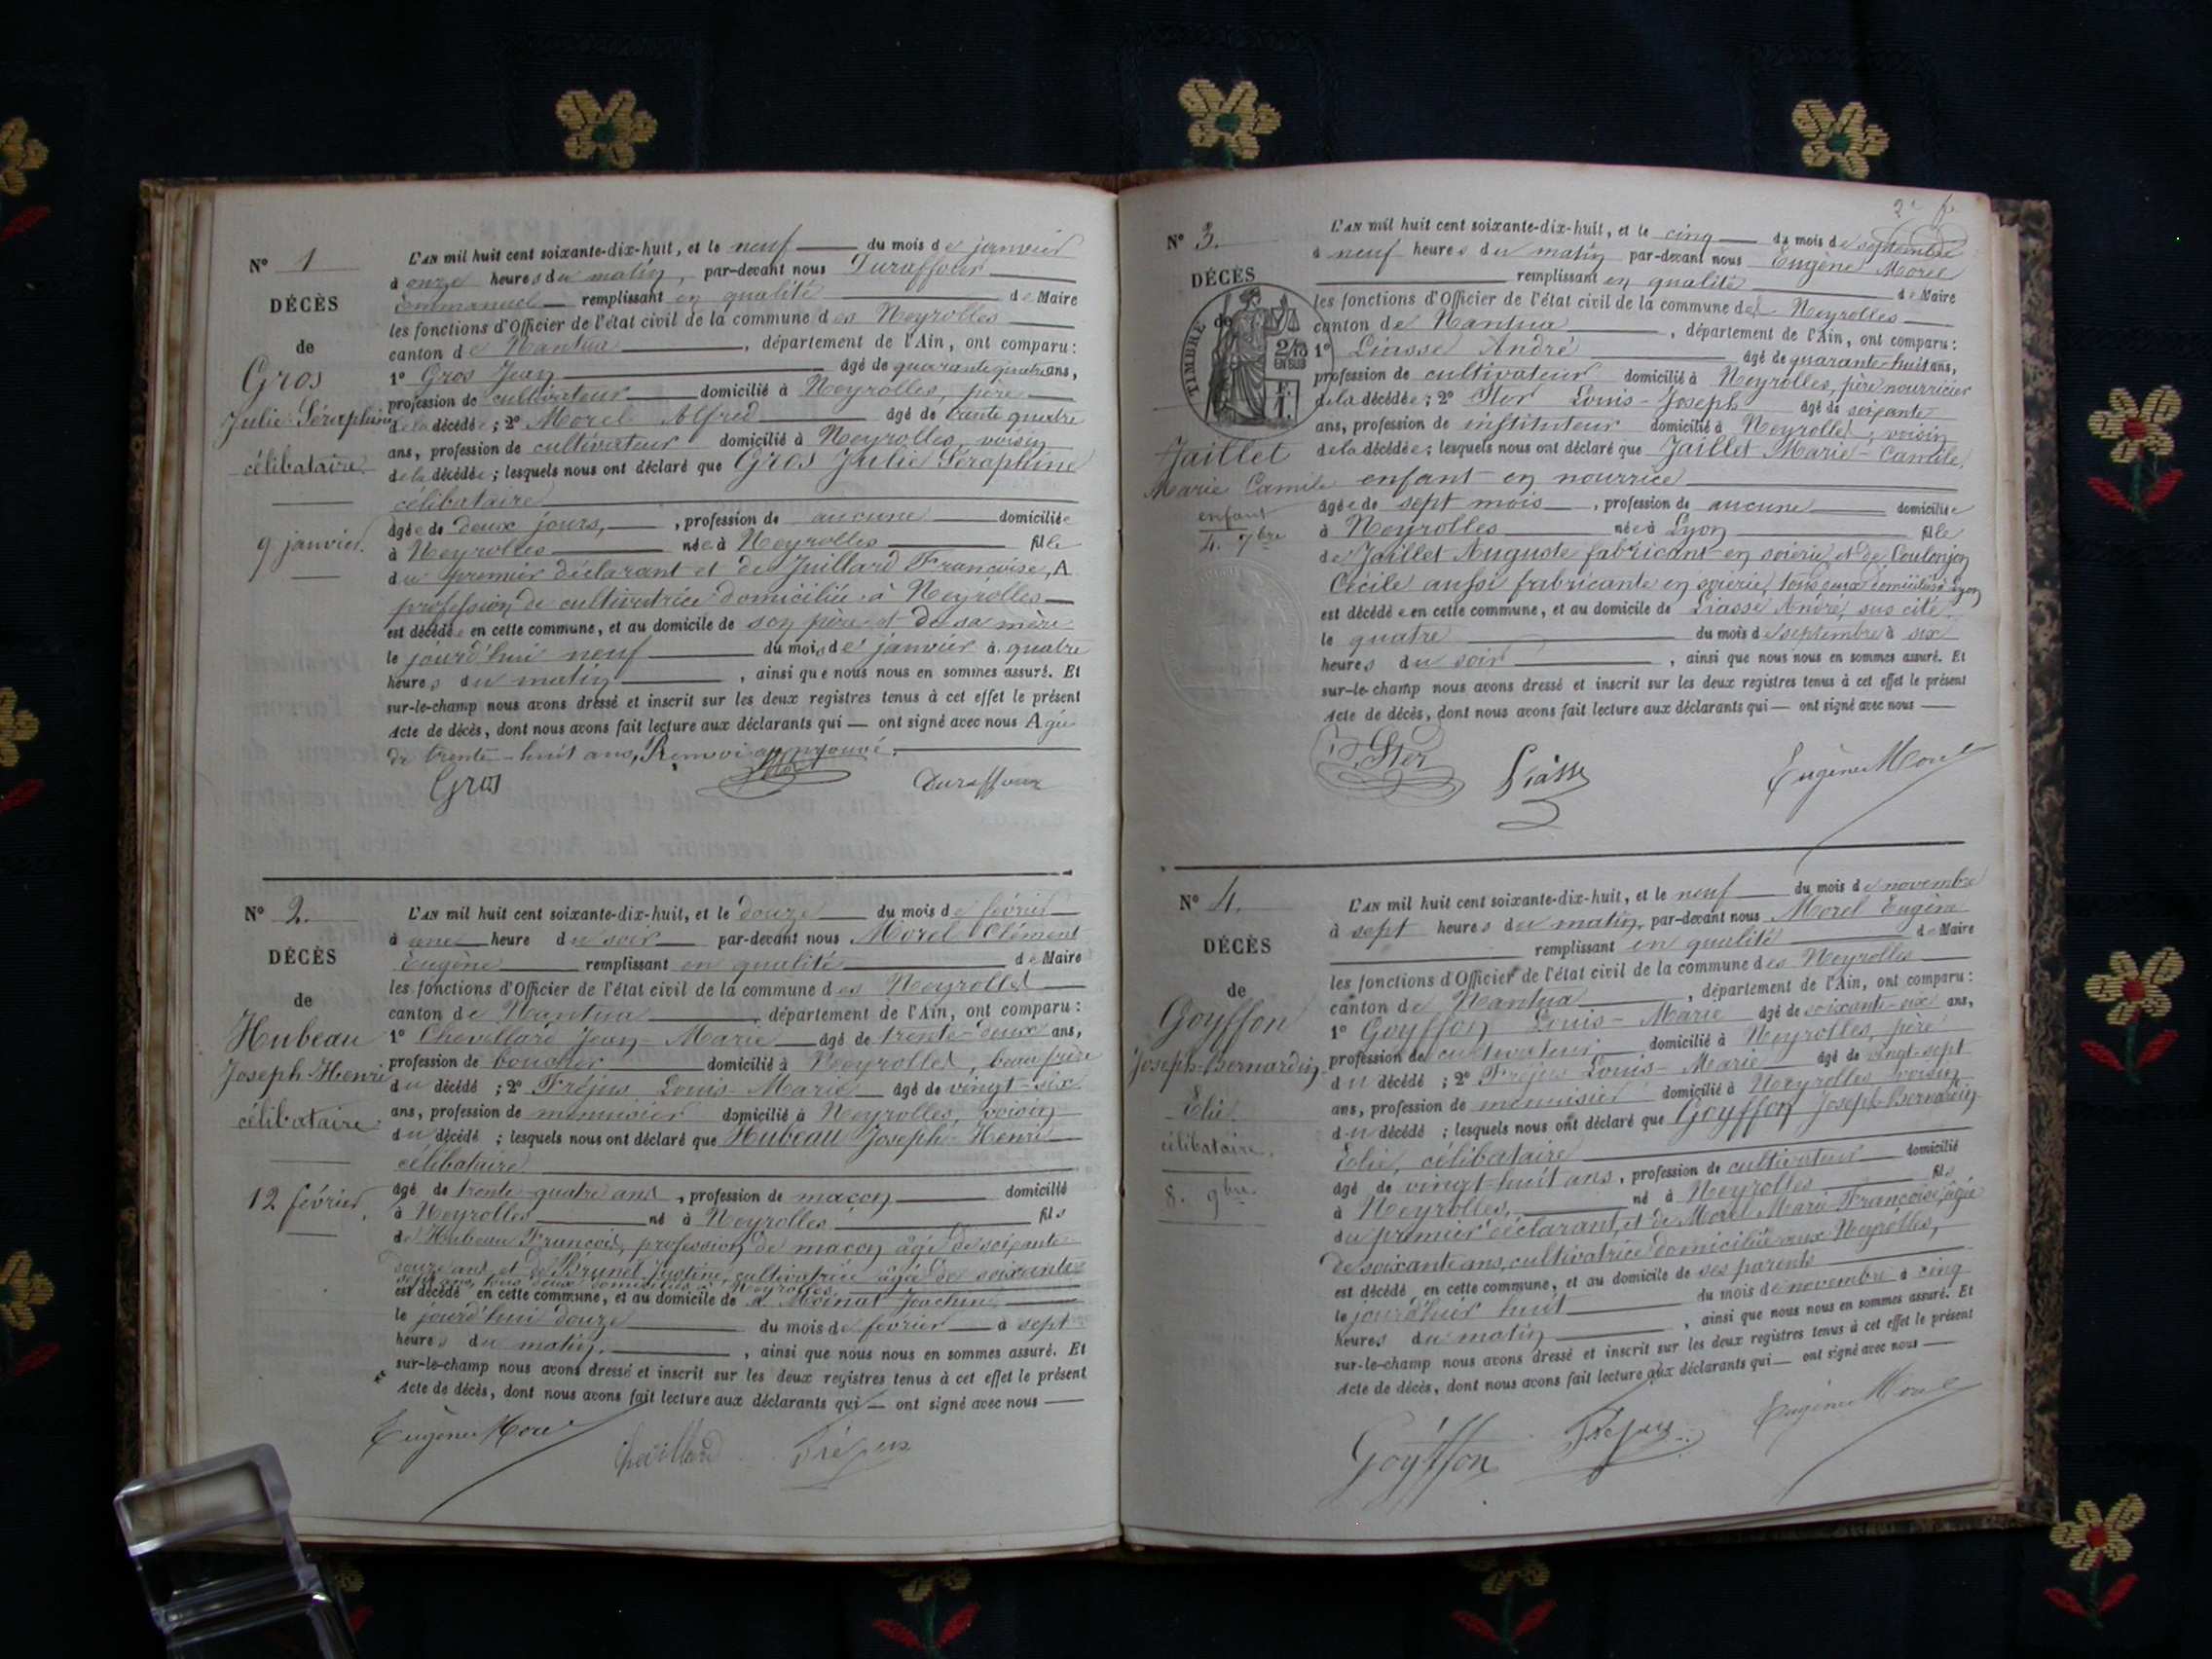 N° 1
DÉCÈS
de
Gros
Julie Séraphine
célibataire
9 janvier.
L'AN mil huit cent soixante-dix-huit, et le neuf du mois de janvier
à onze heures du matin, par-devant nous Duraffour
Emmanuel remplissant en qualité de Maire
les fonctions d'Officier de l'état civil de la commune des Neyrolles
canton de Nantua, département de l'Ain, ont comparu :
1° Gros Jean âgé de quarante quatre ans,
profession de cultivateur domicilié à Neyrolles, père
de la décédée ; 2° Morel Alfred âgé de trente quatre
ans, profession de cultivateur domicilié à Neyrolles, voisin
de la décédée ; lesquels nous ont déclaré que Gros Julie Séraphine
célibataire
âgée de deux jours, profession de aucune domiciliée
à Neyrolles née à Neyrolles fille
du premier déclarant et de Juillard Françoise, A
profession de cultivatrice domiciliée à Neyrolles
est décédée en cette commune, et au domicile de son père et de sa mère
le jourd'hui neuf du mois de janvier à quatre
heures du matin, ainsi que nous nous en sommes assuré. Et
sur-le-champ nous avons dressé et inscrit sur les deux registres tenus à cet effet le présent
Acte de décès, dont nous avons fait lecture aux déclarants qui — ont signé avec nous A âgée
de trente-huit ans, Renvoi approuvé.
Gros Duraffour
N° 2.
DÉCÈS
de
Hubeau
Joseph Henri
célibataire
12 février.
L'AN mil huit cent soixante-dix-huit, et le douze du mois de février
à une heure du soir par-devant nous Morel Clément
Eugène remplissant en qualité de Maire
les fonctions d'Officier de l'état civil de la commune des Neyrolles
canton de Nantua, département de l'Ain, ont comparu :
1° Chevillard Jean-Marie âgé de trente-deux ans,
profession de boucher domicilié à Neyrolles, beau frère
du décédé ; 2° Fréjus Louis-Marie âgé de vingt-six
ans, profession de menuisier domicilié à Neyrolles, voisin
du décédé ; lesquels nous ont déclaré que Hubeau Joseph-Henri
célibataire
âgé de trente-quatre ans, profession de maçon domicilié
à Neyrolles né à Neyrolles fils
de Hubeau François, profession de maçon âgé de soixante-
douze ans, et de Brunet Justine, cultivatrice âgée de soixante
sept ans, tous deux domiciliés à Neyrolles,
est décédé en cette commune, et au domicile de Moinat Joachim
le jourd'hui douze du mois de février à sept
heures du matin, ainsi que nous nous en sommes assuré. Et
sur-le-champ nous avons dressé et inscrit sur les deux registres tenus à cet effet le présent
Acte de décès, dont nous avons fait lecture aux déclarants qui — ont signé avec nous
Eugène Morel Chevillard Fréjus
2e f.
N° 3.
DÉCÈS
de
TIMBRE
2/10
EN SUS
F.
1.
Jaillet
Marie Camile
enfant
4. 7bre
L'AN mil huit cent soixante-dix-huit, et le cinq du mois de septembre
à neuf heures du matin par-devant nous Eugène Morel
remplissant en qualité de Maire
les fonctions d'Officier de l'état civil de la commune des Neyrolles
canton de Nantua, département de l'Ain, ont comparu :
1° Liasse André âgé de quarante-huit ans,
profession de cultivateur domicilié à Neyrolles, père nourricier
de la décédée ; 2° Ster Louis-Joseph âgé de soixante
ans, profession de instituteur domicilié à Neyrolles, voisin
de la décédée ; lesquels nous ont déclaré que Jaillet Marie-Camile,
enfant en nourrice
âgée de sept mois, profession de aucune domiciliée
à Neyrolles née à Lyon fille
de Jaillet Auguste fabricant en soierie, et de Coulonjon
Cécile aussi fabricante en soierie, tous deux domiciliés Lyon
est décédée en cette commune, et au domicile de Liasse André, sus cité.
le quatre du mois de septembre à six
heures du soir, ainsi que nous nous en sommes assuré. Et
sur-le-champ nous avons dressé et inscrit sur les deux registres tenus à cet effet le présent
Acte de décès, dont nous avons fait lecture aux déclarants qui — ont signé avec nous
Ster Liasse Eugène Morel
N° 4.
DÉCÈS
de
Goyffon
Joseph-Bernardin
Elie.
célibataire.
8. 9bre
L'AN mil huit cent soixante-dix-huit, et le neuf du mois de novembre
à sept heures du matin, par-devant nous Morel Eugène
remplissant en qualité de Maire
les fonctions d'Officier de l'état civil de la commune des Neyrolles
canton de Nantua, département de l'Ain, ont comparu :
1° Goyffon Louis-Marie âgé de soixante-six ans,
profession de cultivateur domicilié à Neyrolles, père
du décédé ; 2° Fréjus Louis-Marie âgé de vingt-sept
ans, profession de menuisier domicilié à Neyrolles voisin
du décédé ; lesquels nous ont déclaré que Goyffon Joseph-Bernardin
Elie, célibataire
âgé de vingt-huit ans, profession de cultivateur domicilié
à Neyrolles, né à Neyrolles fils
du premier déclarant, et de Morel Marie Françoise, âgée
de soixante ans, cultivatrice domiciliée aux Neyrolles,
est décédé en cette commune, et au domicile de ses parents
le jourd'hier huit du mois de novembre à cinq
heures du matin, ainsi que nous nous en sommes assuré. Et
sur-le-champ nous avons dressé et inscrit sur les deux registres tenus à cet effet le présent
Acte de décès, dont nous avons fait lecture aux déclarants qui — ont signé avec nous
Goyffon Fréjus Eugène Morel